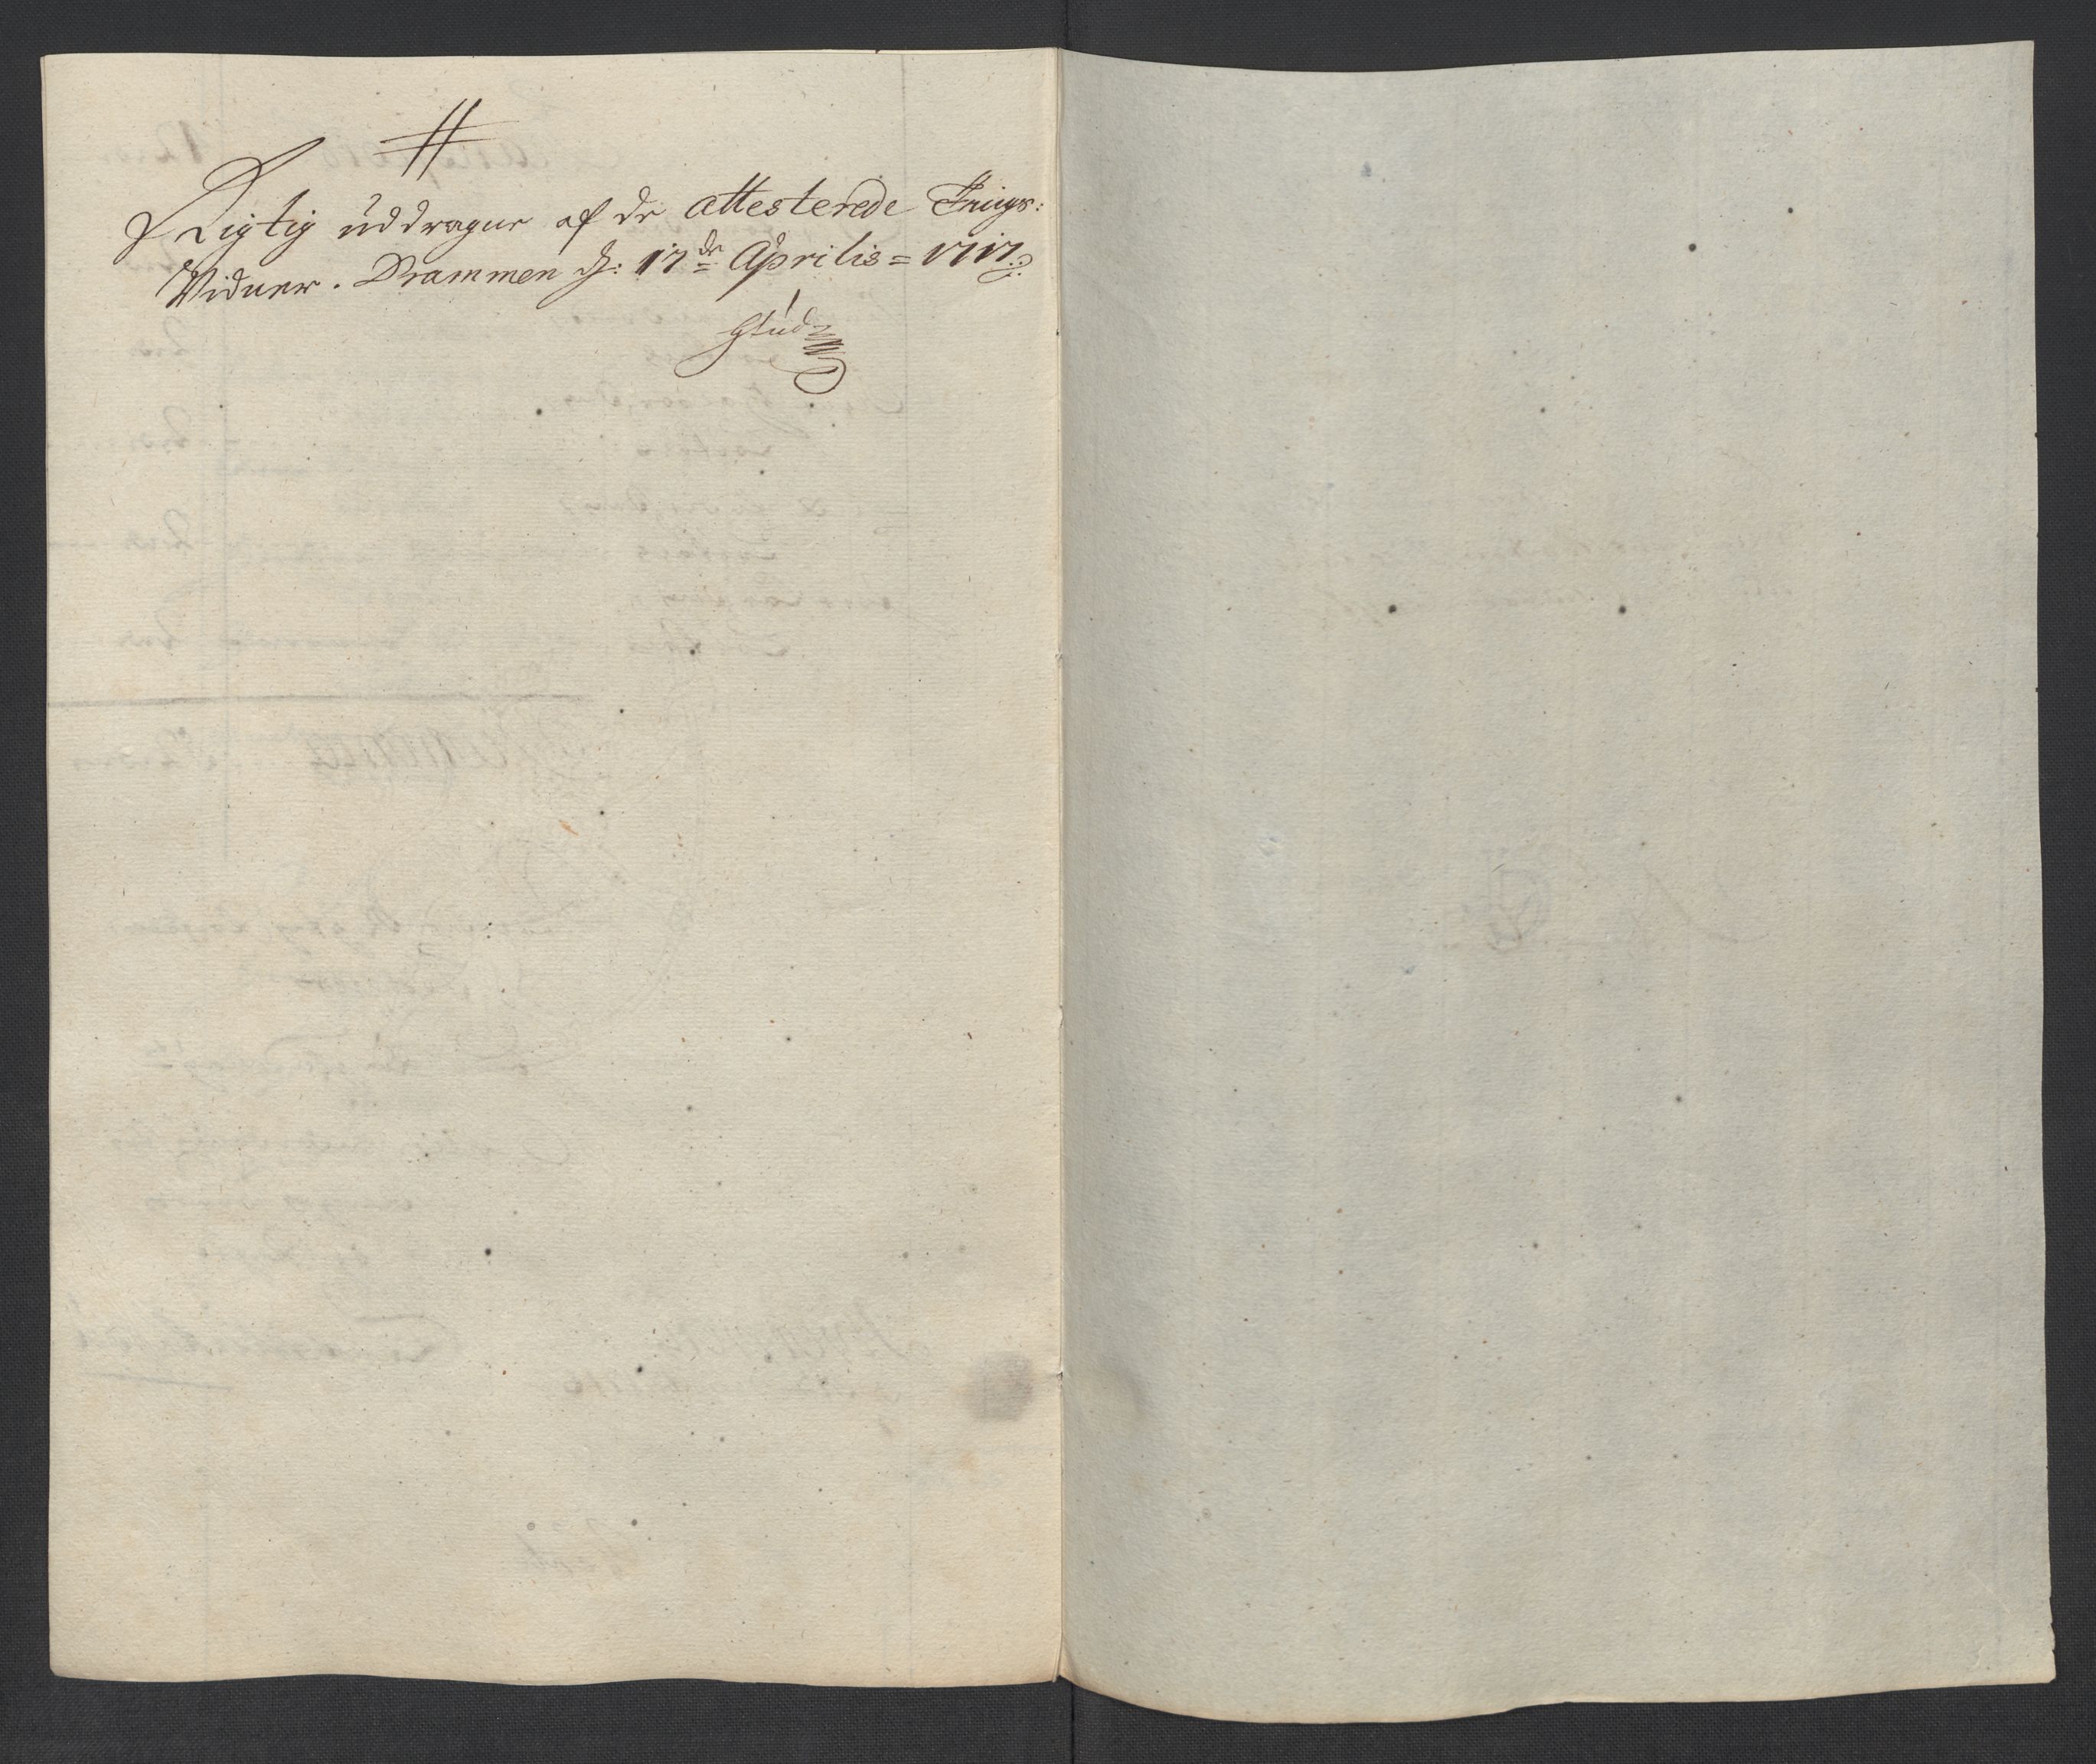 Rigtig uddragne af de attesterede Tings:
Vidner. Drammen d: 17de Aprilis = 1717.
Glud